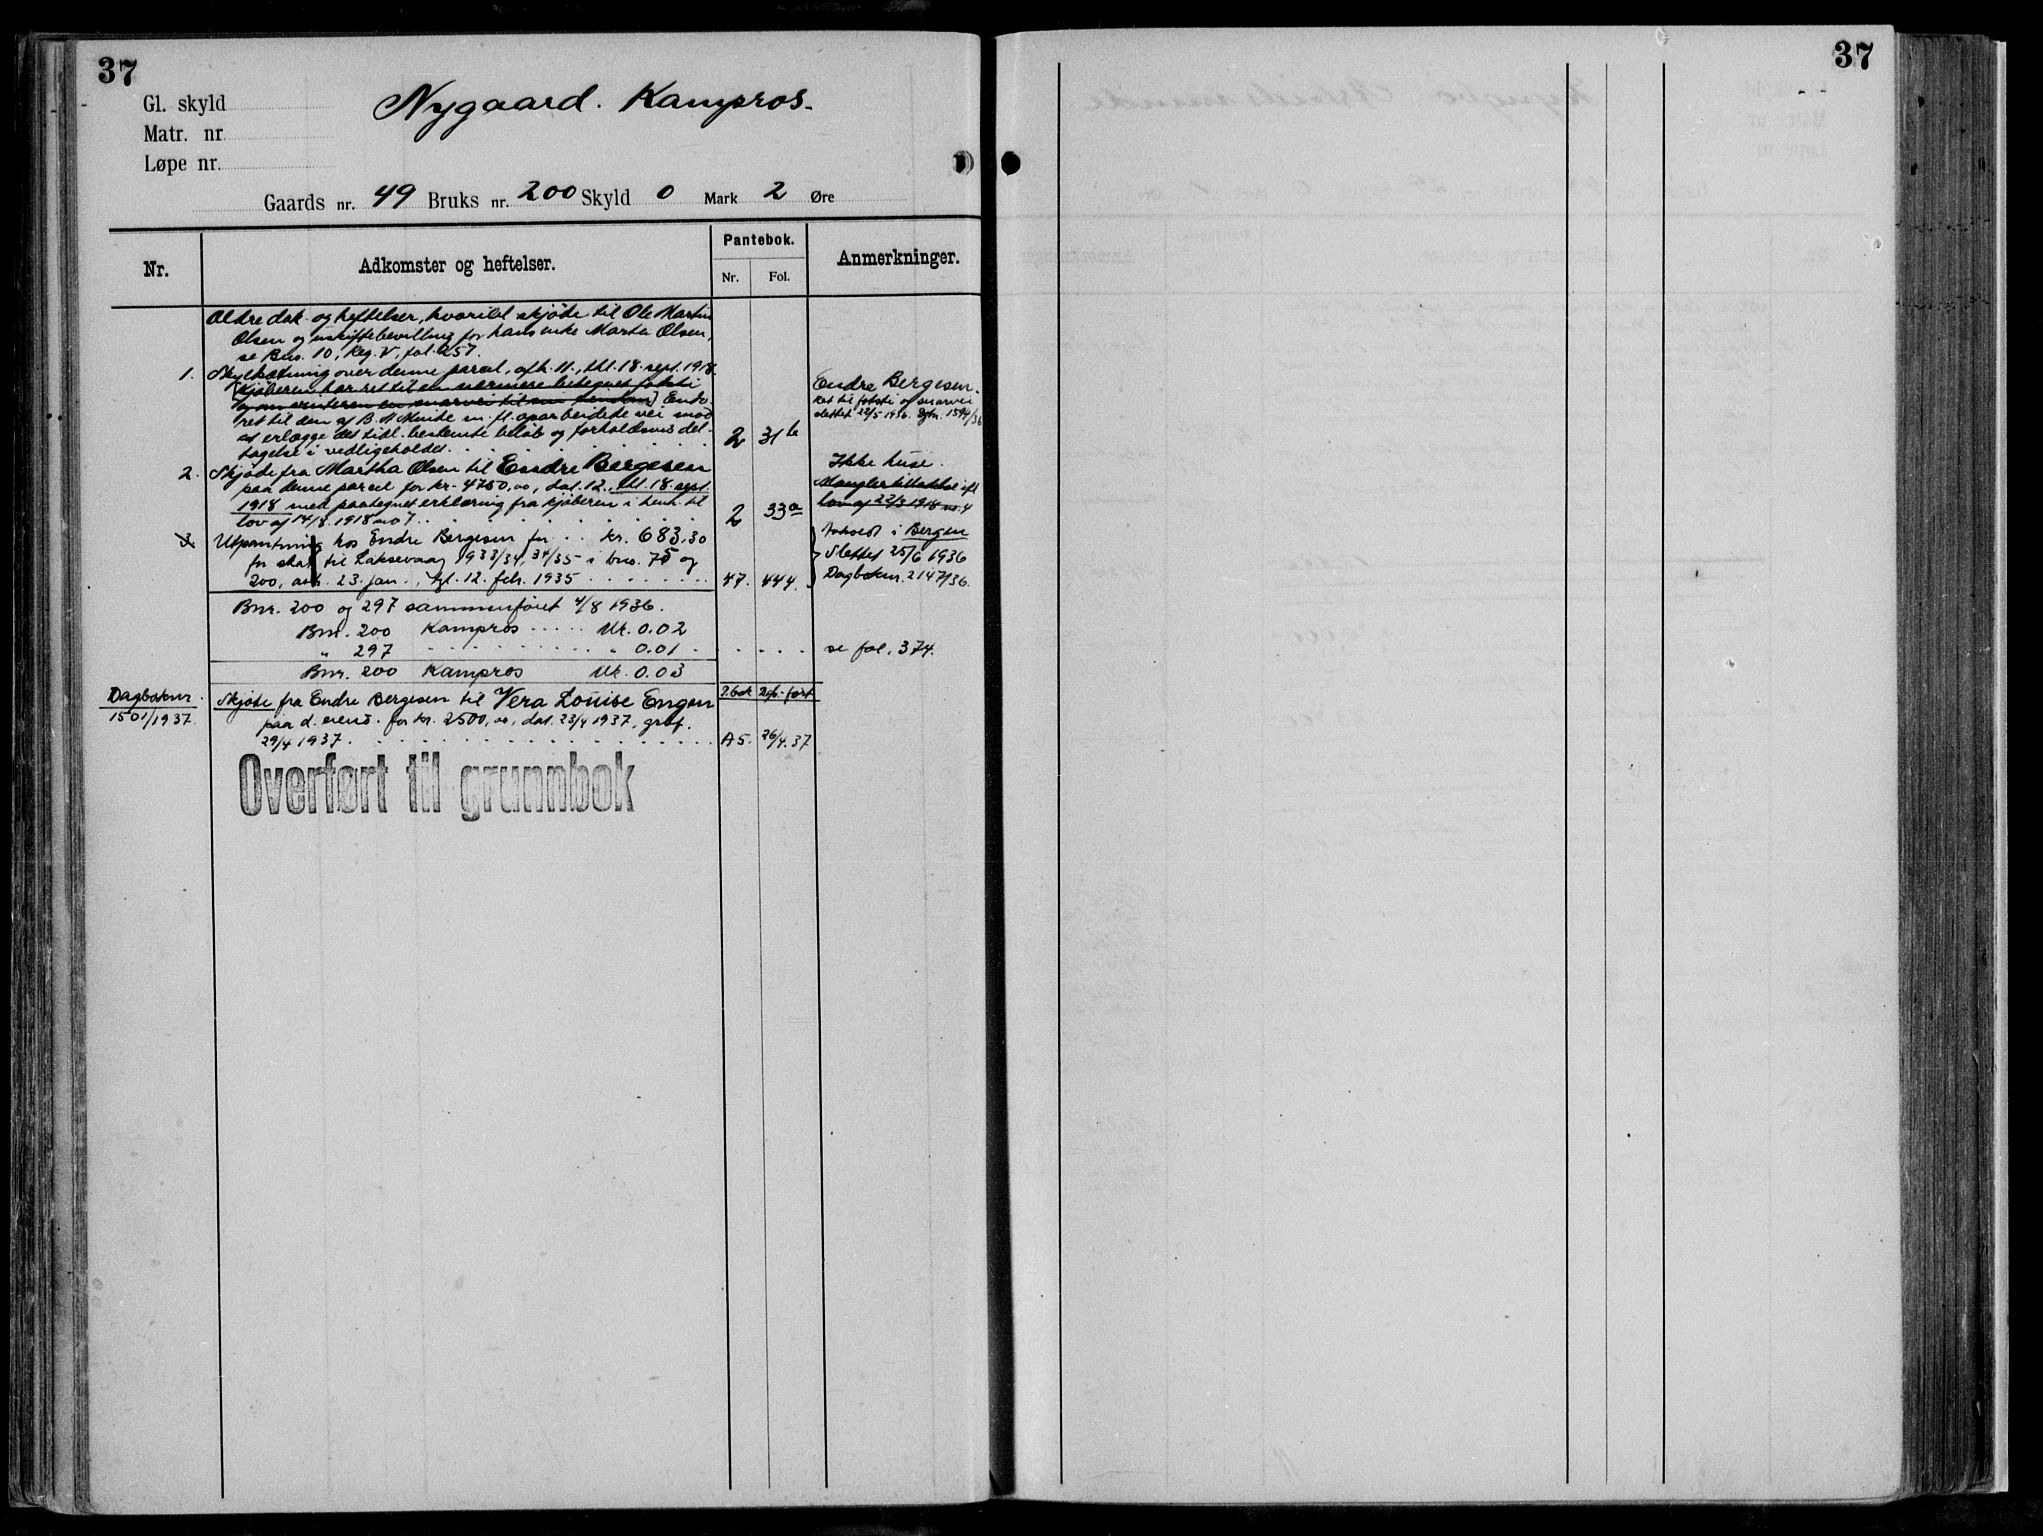 37
37
Gl. skyld
Matr. nr.
Løpe nr.
Nygaard. Kampros.
Gaards nr. 49 Bruks nr. 200 Skyld 0 Mark 2 Øre
Nr.
Adkomster og heftelser.
Pantebok.
Nr.
Fol.
Anmerkninger.
Ældre dok. og heftelser, hvoriblt skjøte til Ole Martin
Olsen og uskiftebevilling for hans enke Marta Olsen,
se Bno. 10, Reg. V, fol. 257.
1. Skyldsetning over denne parcel, afh. 11., thl. 18. sept. 1918.
(Kjøberen har ret til en nærmere betegnet fotsti
og en snarvei til sin eiendom) Endv.
ret til den af B. A. Munthe m. fl. oparbeidete vei mod
at erlægge det tidl. bestemte beløb og forholdsvis del-
tagelse i vedligeholdet. 2 31b
Endre Bergesen.
Ret til fotsti og snarvei
slettet 22/5 1936. Dgbn. 1594/36
2. Skjøte fra Martha Olsen til Endre Bergesen
paa denne parcel for kr. 4750,00, dat. 12., thl. 18. sept.
1918 med paategnet erklæring fra kjøberen i henh. til
lov af 14/8. 1918 no 7. 2 33a
Ikke huse.
Mangler tillatelse ifl
lov af 22/3 1918 no. 4
3. Utpantning hos Endre Bergesen for .. kr. 683,30
for skatt til Laksevaag 1933/34, 34/35 i bno. 75 og
200, avh. 23. jan., tgl. 12. febr. 1935 47. 444.
Innholdt i Bergen
Slettet 25/6 1936
Dagboknr. 2147/36.
Bnr. 200 og 297 sammenføiet 4/8 1936.
Bnr. 200 Kampros Mk. 0.02
" 297 " 0.01 se fol. 374.
Bnr. 200 Kampros Mk. 0.03
Dagboknr.
1501/1937.
P.bok Dgb.-ført
Skjøte fra Endre Bergesen til Vera Louise Engen
paa d. eiend. for kr. 2500,00, dat. 23/4 1937, grbf.
29/4 1937. A5. 26/4.37
Overført til grunnbok